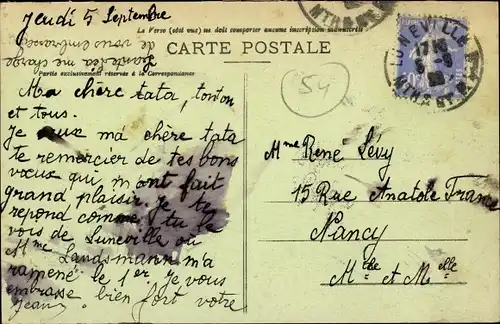 Jeudi 5 Septembre
Le Verso (côté vue) ne doit comporter aucune inscription manuscrite
CARTE POSTALE
Partie exclusivement réservée à la Correspondance
de vous embrasser
me charge
54
LUNEVILLE
Ma chère tata, tonton
et tous.
Je veux ma chère tata
te remercier de tes bons
vœux qui m'ont fait
grand plaisir. Je te
repond comme tu le
vois de Luneville où
Mme Landsmann m'a
ramené le 1er. Je vous
embrasse bien fort votre
Jean
Mme René Lévy
15 Rue Anatole France
Nancy
Mthe et Mlle